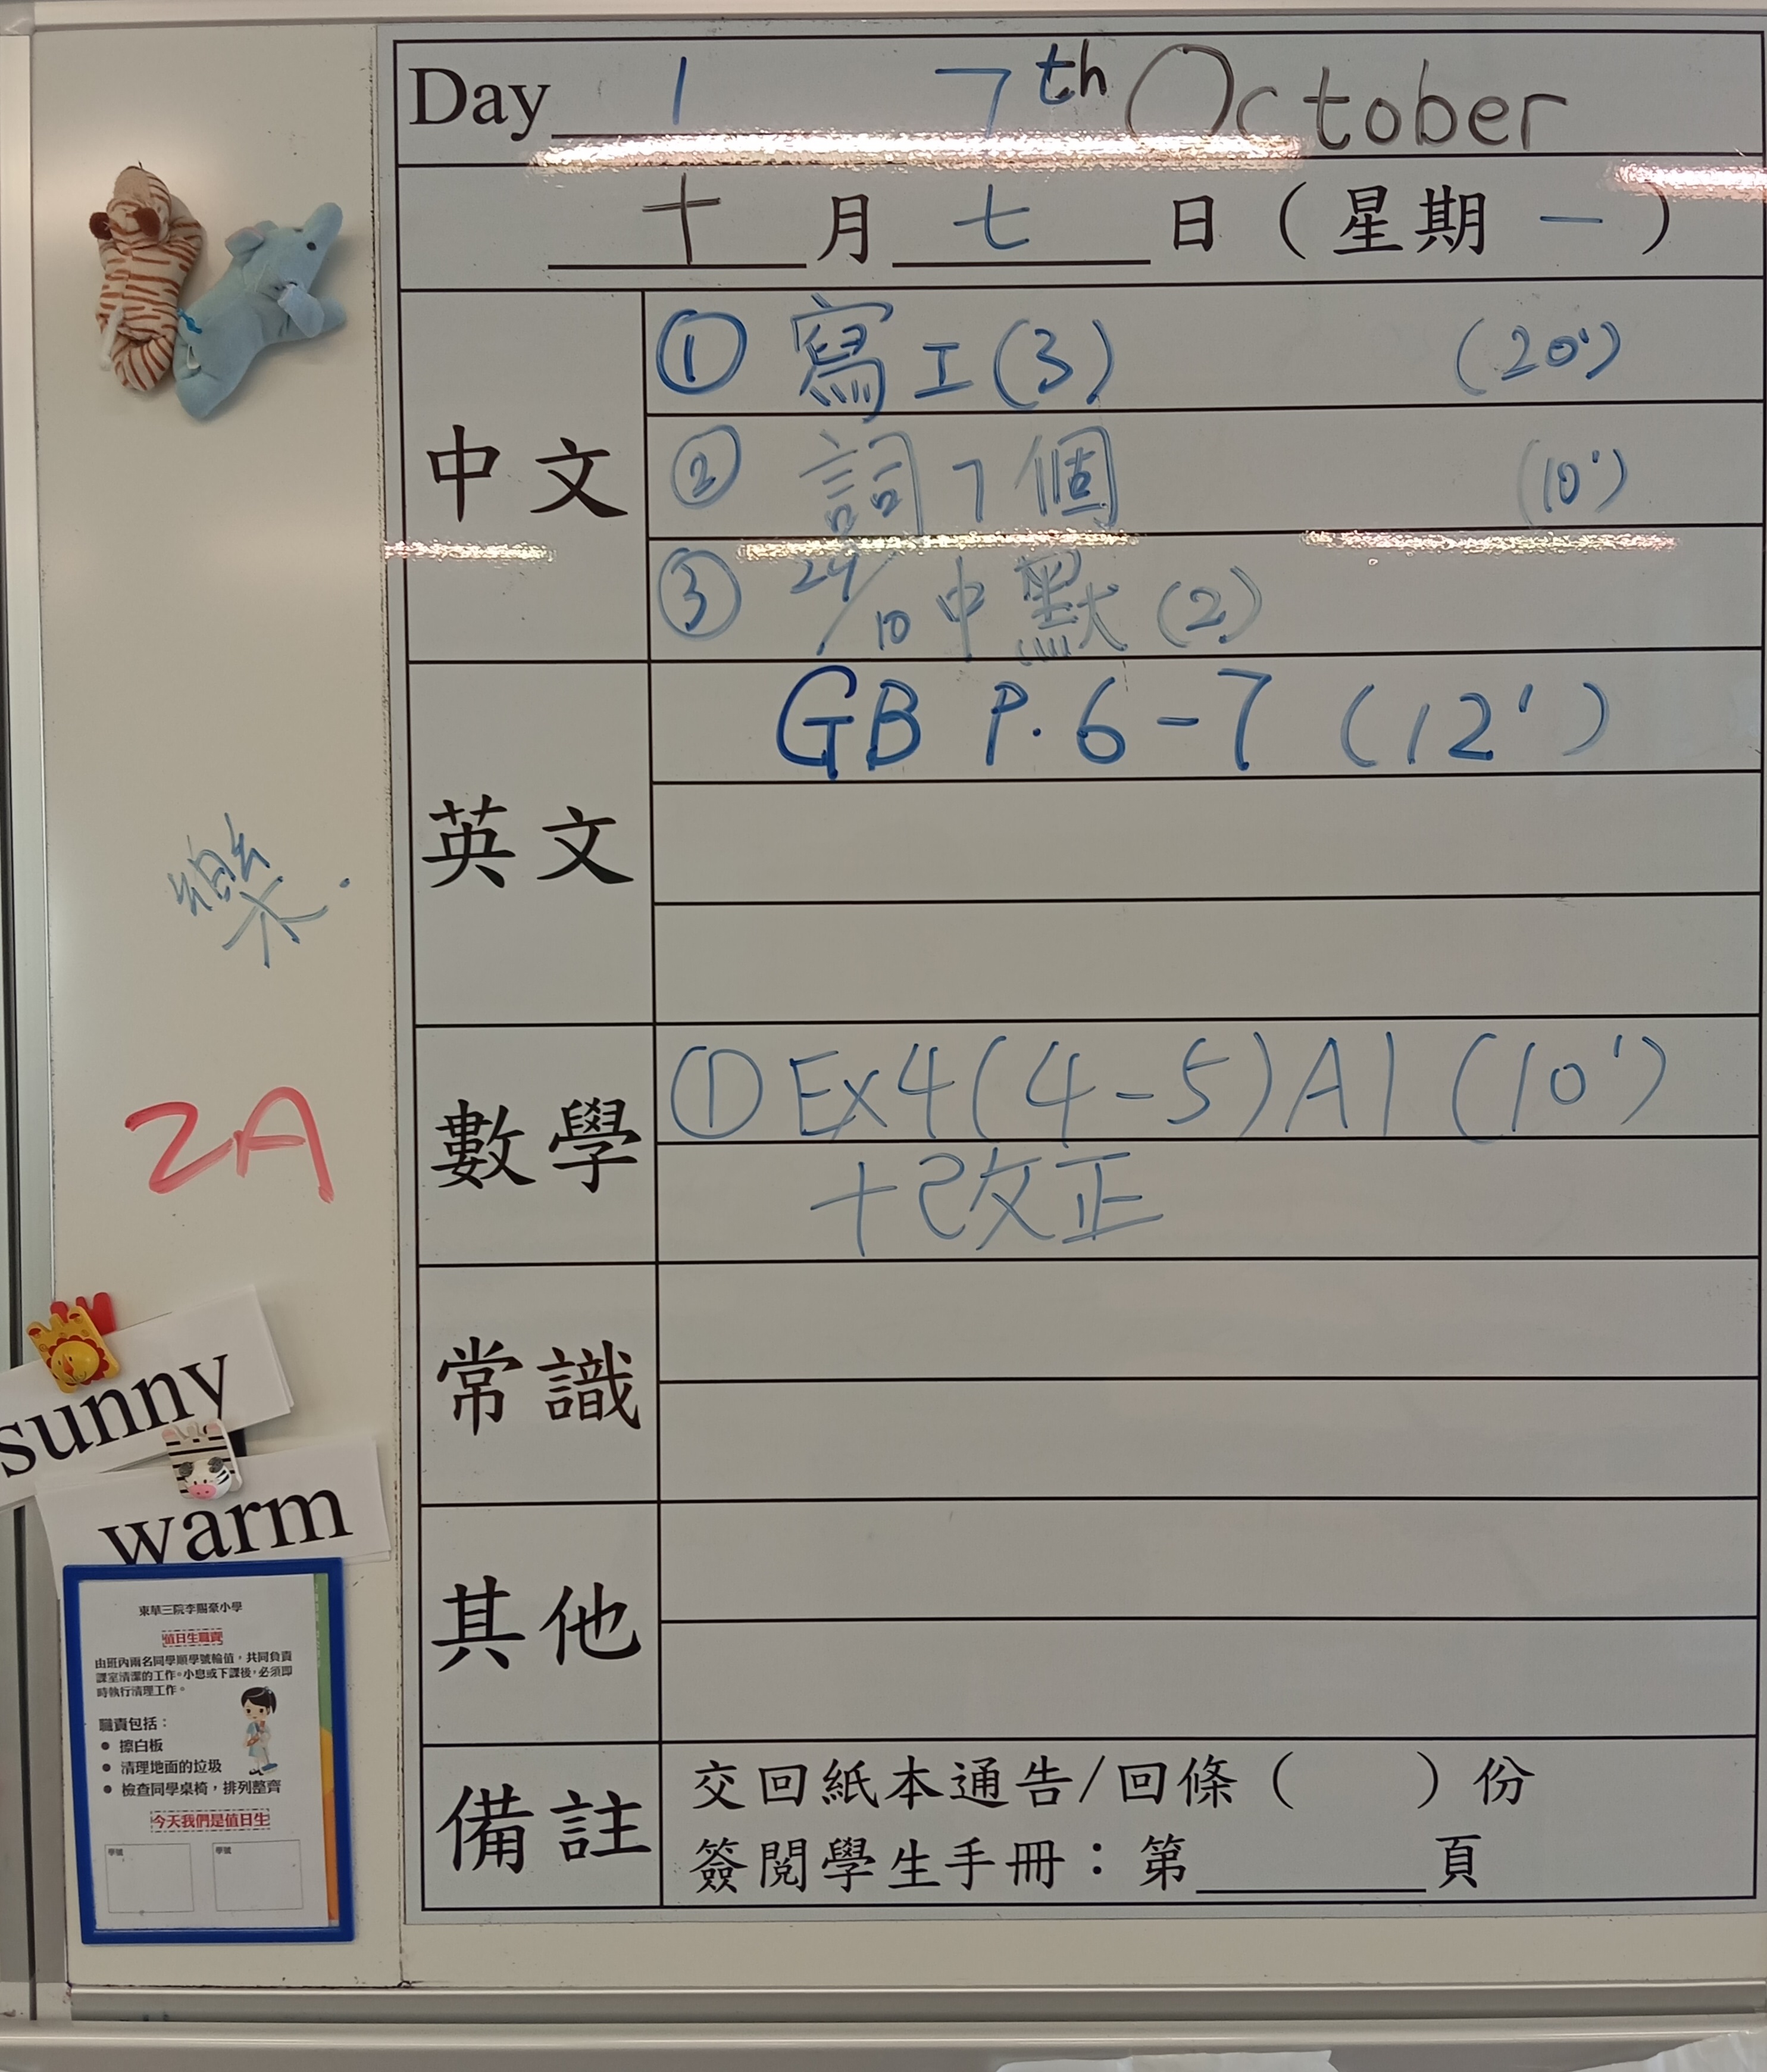 Day 1 7th October
十月七日（星期一）
中文
① 寫工(3) (20')
② 詞7個 (10')
③ 24/10 中默(2)
英文
GB P.6-7 (12')
樂
數學
① Ex4(4-5)A1 (10')
+改正
2A
常識
sunny
warm
其他
備註
交回紙本通告/回條（ ）份
簽閱學生手冊：第______頁
東華三院李賜豪小學
值日生職責
由班內兩名同學順學號輪值，共同負責
課室清潔的工作。小息或下課後，必須即
時執行清理工作。
職責包括：
● 擦白板
● 清理地面的垃圾
● 檢查同學桌椅，排列整齊
今天我們是值日生
學號 學號